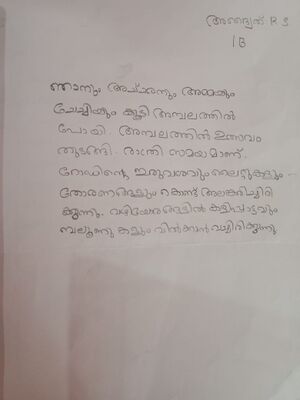 അദ്വൈത് R S
1B
ഞാനും അച്ഛനും അമ്മയും
ചേച്ചിയും കൂടി അമ്പലത്തിൽ
പോയി. അമ്പലത്തിൽ ഉത്സവം
തുടങ്ങി. രാത്രി സമയമാണ്.
റോഡിന്റെ ഇരുവശവും ലൈറ്റുകളും
തോരണങ്ങളും കൊണ്ട് അലങ്കരിച്ചിരി
ക്കുന്നു. വഴിയോരങ്ങളിൽ കളിപ്പാട്ടവും
ബലൂണുകളും വിൽക്കാൻ വച്ചിരിക്കുന്നു